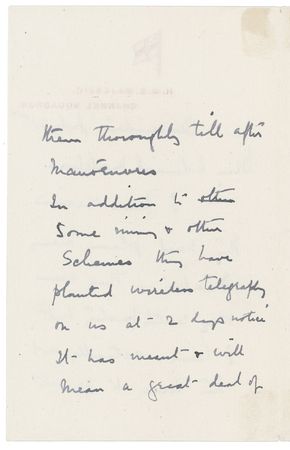 them thoroughly till after
manoeuvres
In addition to other
Some mining & other
Schemes they have
planted wireless telegraphy
on us at 2 days notice
It has meant & will
mean a great deal of